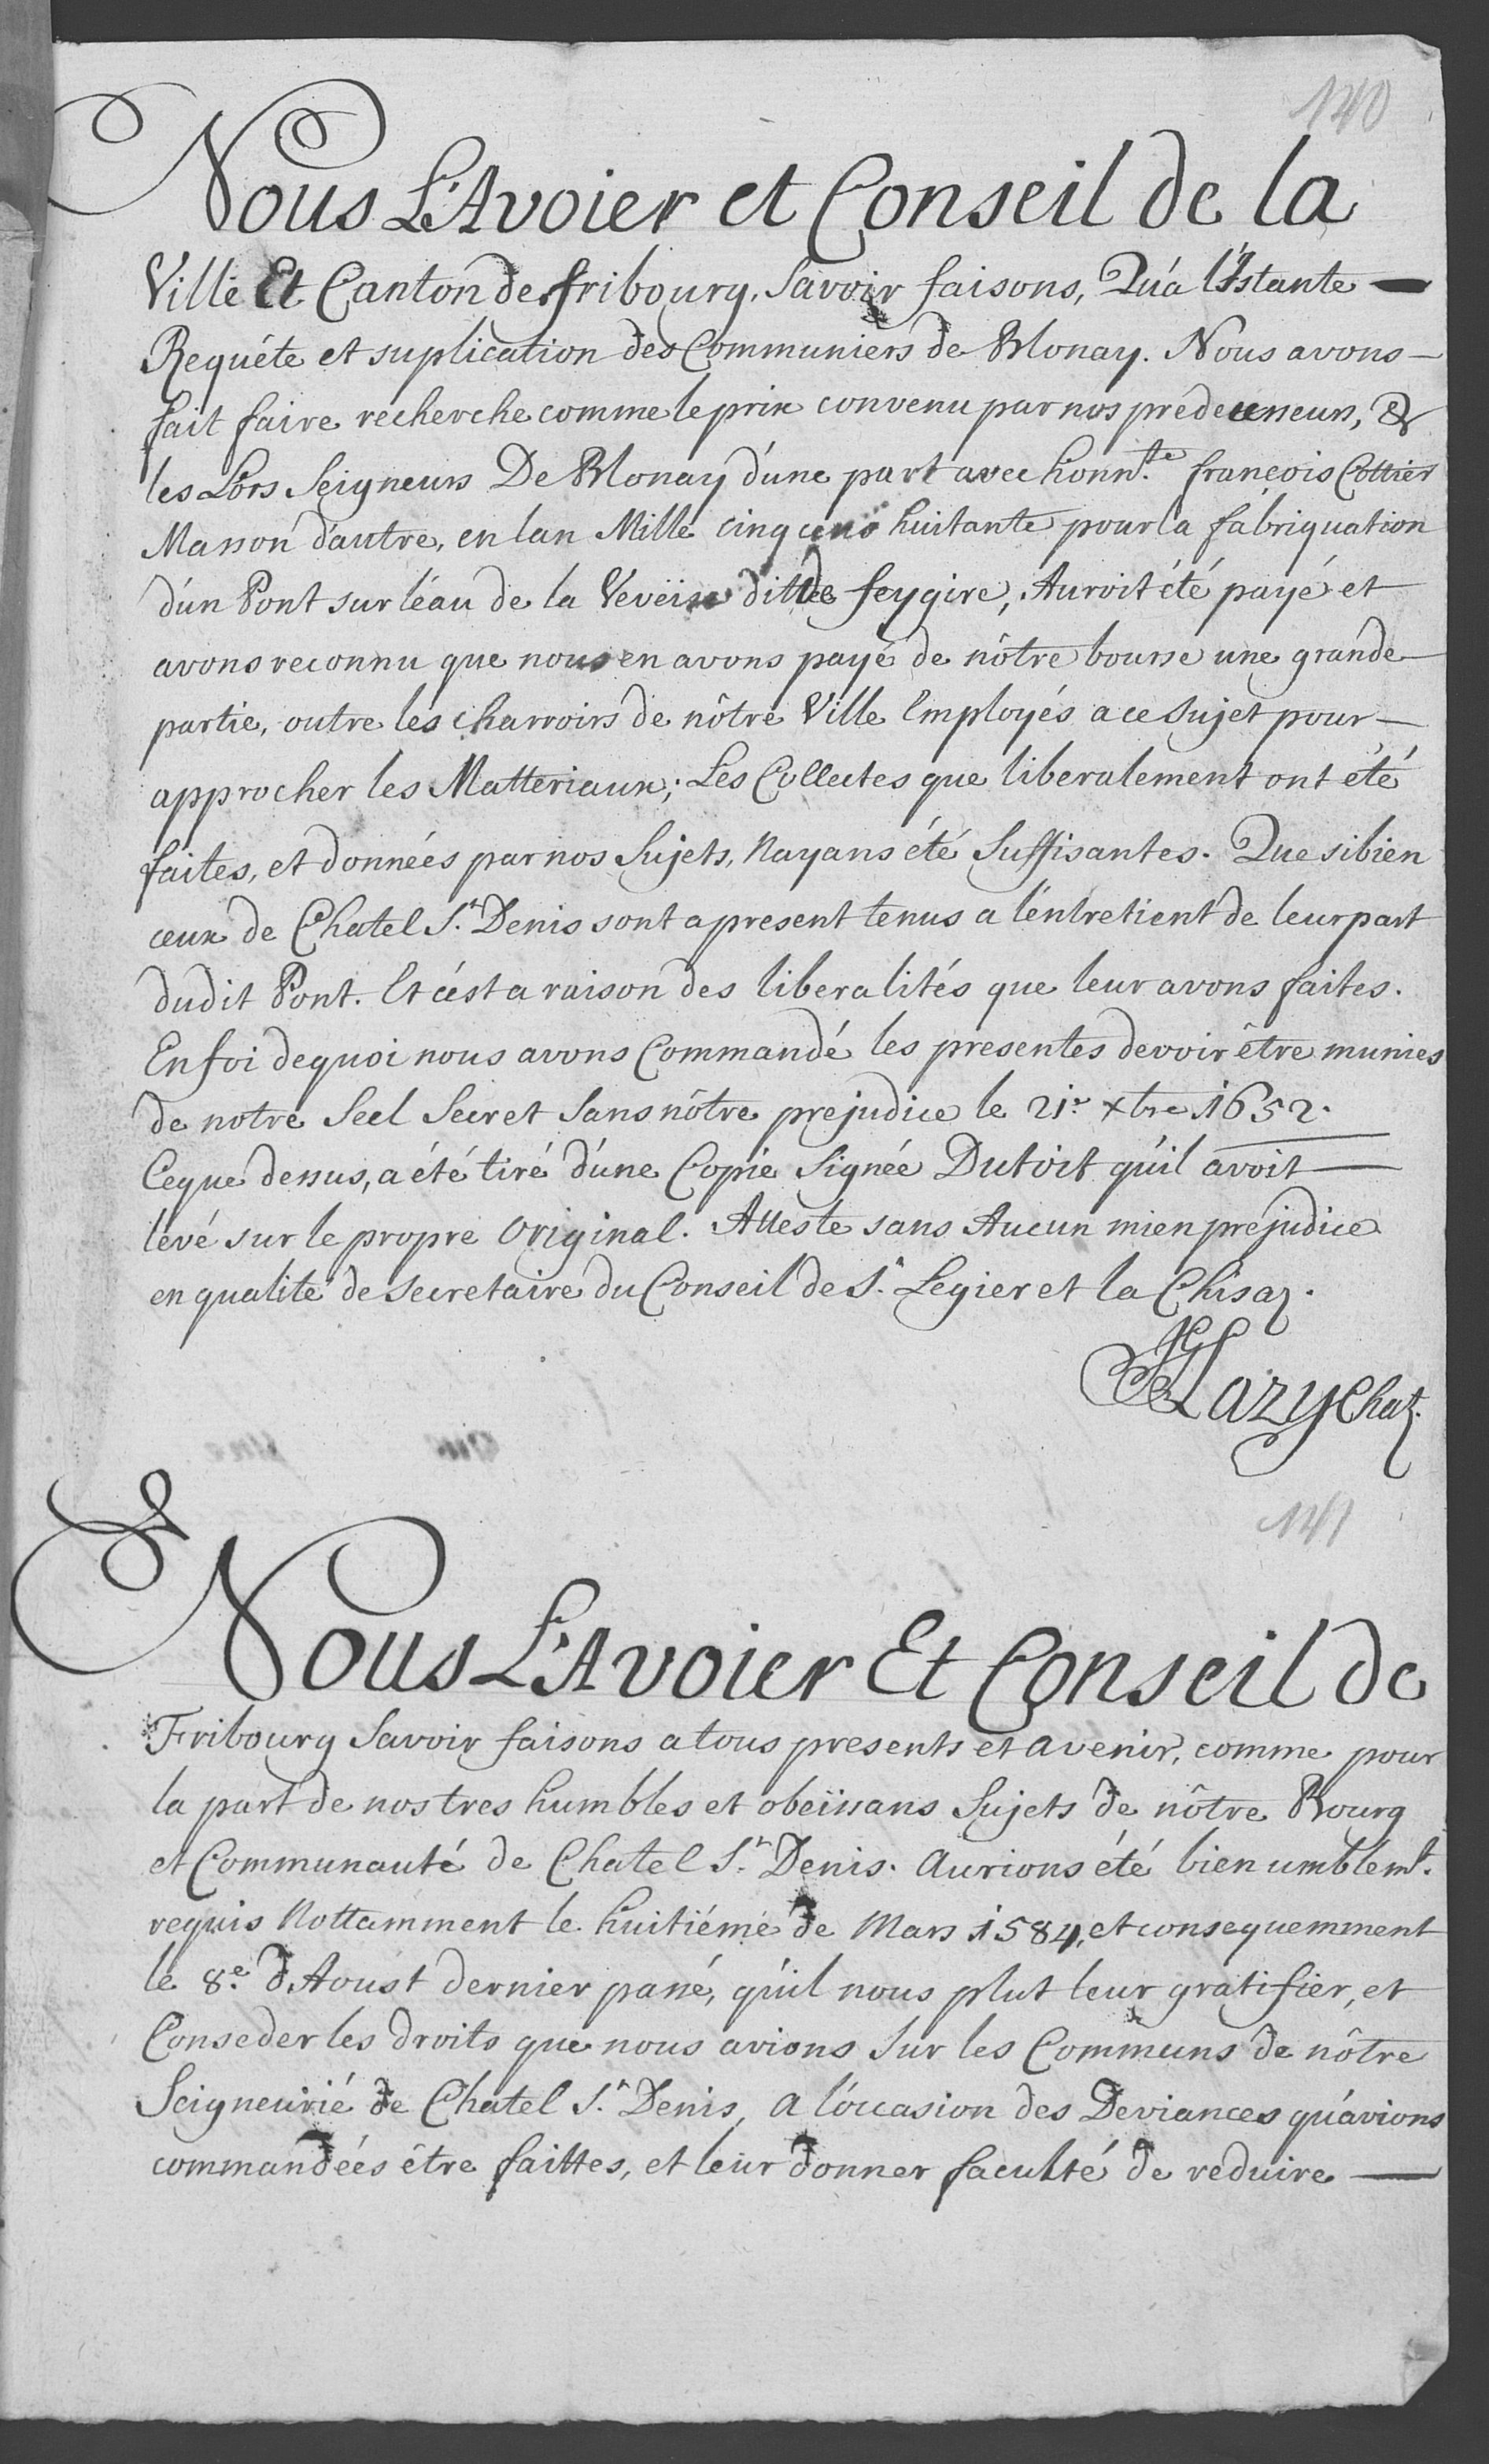 140
Nous L'Avoier et Conseil de la
Ville Et Canton de fribourg, Savoir faisons, Qu'a l'Istante
Requéte et suplication des Communiers de Blonay. Nous avons
fait faire recherche comme le prix convenu par nos prédecesseurs, &
les Lors Seigneurs De Blonay d'une part avec honn.te françois Cottier
Masson d'autre, en lan Mille cinq cens huitante pour la fabriquation
d'un Pont sur l'éau de la Veveïse ditte de feygire, Auroit été payé et
avons reconnu que nous en avons payé de nôtre bourse une grande
partie, outre les charroirs de nôtre Ville Employés a ce Sujet pour
approcher les Matteriaux; Les Collectes que liberalement ont été
faites, et données par nos Sujets, Nayans été Suffisantes. Que si bien
ceux de Chatel S.t Denis sont apresent tenus a l'éntretient de leur part
dudit Pont. Et c'ést a raison des liberalités que leur avons faites.
En foi dequoi nous avons Commandé les presentes devoir être munies
de notre Seel Secret Sans nôtre prejudice le 21.e xbre 1652.
Ceque dessus, a été tiré d'une Copie Signée Dutoit qu'il avoit
levé sur le propre Original. Atteste sans Aucun mien préjudice
en qualité de Secretaire du Conseil de S.t Legier et la Chisaz.
Lazy Chat.
141
Nous L'Avoier Et Conseil de
Fribourg Savoir faisons a tous presents et avenir, comme pour
la part de nos tres humbles et obeïssans Sujets de nôtre Bourg
et Communauté de Chatel S.t Denis. Aurions été bien umblemt.
requis Nottamment le huitiéme de Mars 1584, et consequemment
le 8.e d'Aoust dernier passé, qu'il nous plut leur gratifier, et
Conseder les droits que nous avions Sur les Communs de nôtre
Seigneurié de Chatel S.t Denis, a l'óccasion des Deviances qu'avions
commandées être faittes, et leur donner faculté de reduire